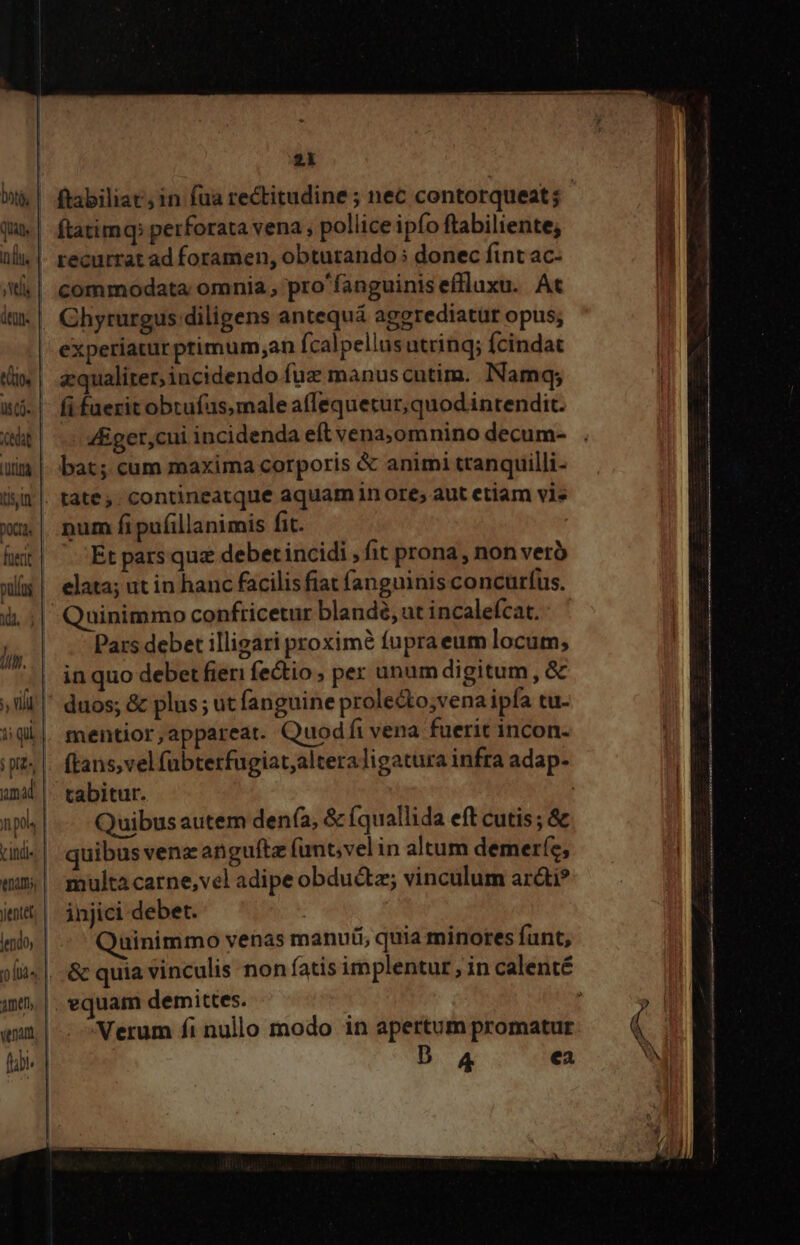 21
ſtabiliat, in ſua rectitudine; nec contorqueat;
ſtatimq; perforata vena, pollice ipſo ſtabiliente,
recurrat ad foramen, obturando; donec ſint ac-
commodata omnia, pro ſanguinis effluxu. At
Chyrurgus diligens antequā aggrediatur opus,
experiatur primum, an ſcalpellus utrinq; ſcindat
æqualiter, incidendo ſuæ manus cutim. Namq;
ſi fuerit obtuſus, male aſſequetur, quod intendit.
Æger, cui incidenda eſt vena, omnino decum-
bat; cum maxima corporis & animi tranquilli-
tate, contineatque aquam in ore, aut etiam vi-
num ſi puſillanimis ſit.
Et pars quæ debet incidi, ſit prona, non verò
elata; ut in hanc facilis fiat ſanguinis concurſus.
Quinimmo confricetur blandè, ut incaleſcat.
Pars debet illigari proximè ſupra eum locum,
in quo debet fieri ſectio, per unum digitum, &
duos; & plus; ut ſanguine prolecto, vena ipſa tu-
mentior, appareat. Quod ſi vena fuerit incon-
ſtans, vel ſubterfugiat, altera ligatura infra adap-
tabitur.
Quibus autem denſa, & ſquallida eſt cutis; &
quibus venæ anguſtæ ſunt, vel in altum demerſæ,
multa carne, vel adipe obductæ; vinculum arcti⁹
injici debet.
Quinimmo venas manuū, quia minores ſunt,
& quia vinculis non ſatis implentur, in calentē
equam demittes.
Verum ſi nullo modo in apertum promatur
B 4 ea